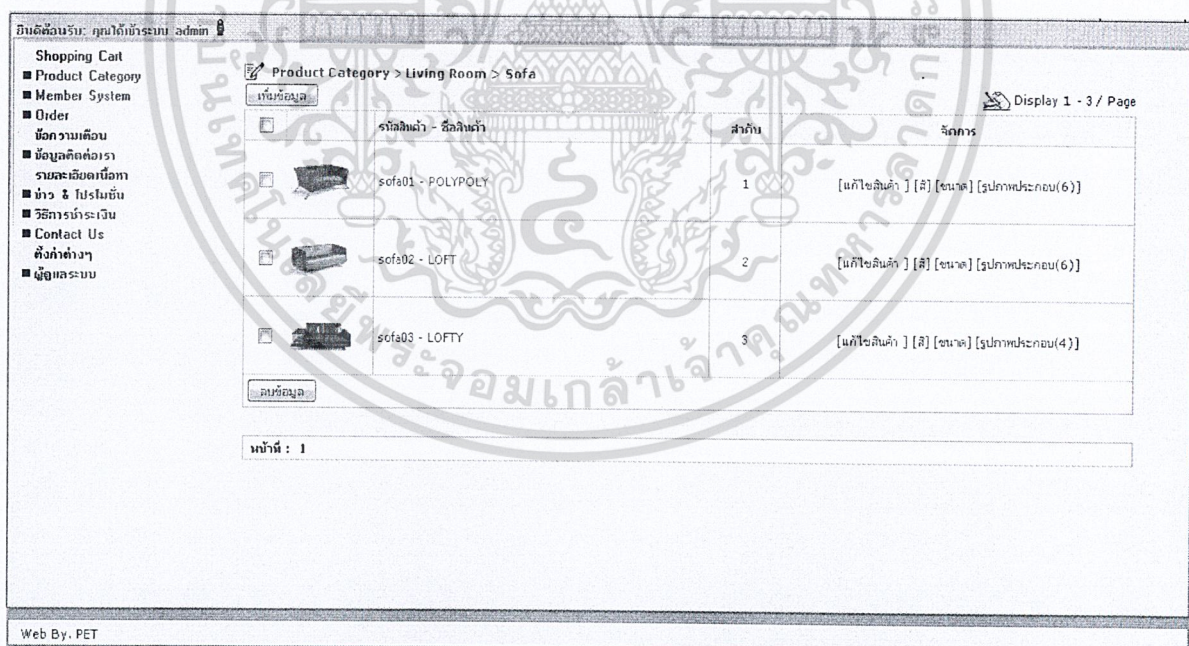 ยินดีต้อนรับ: คุณได้เข้าระบบ admin
Shopping Cart
Product Category
Member System
Order
ข้อความเตือน
ข้อมูลติดต่อเรา
รายละเอียดเนื้อหา
ข่าว & โปรโมชั่น
วิธีการชำระเงิน
Contact Us
ตั้งค่าต่างๆ
ผู้ดูแลระบบ
Product Category > Living Room > Sofa
เพิ่มข้อมูล
Display 1 - 3 / Page
รหัสสินค้า - ชื่อสินค้า ลำดับ จัดการ
sofa01 - POLYPOLY 1 [แก้ไขสินค้า ] [สี] [ขนาด] [รูปภาพประกอบ(6)]
sofa02 - LOFT 2 [แก้ไขสินค้า ] [สี] [ขนาด] [รูปภาพประกอบ(6)]
sofa03 - LOFTY 3 [แก้ไขสินค้า ] [สี] [ขนาด] [รูปภาพประกอบ(4)]
ลบข้อมูล
หน้าที่ : 1
Web By. PET